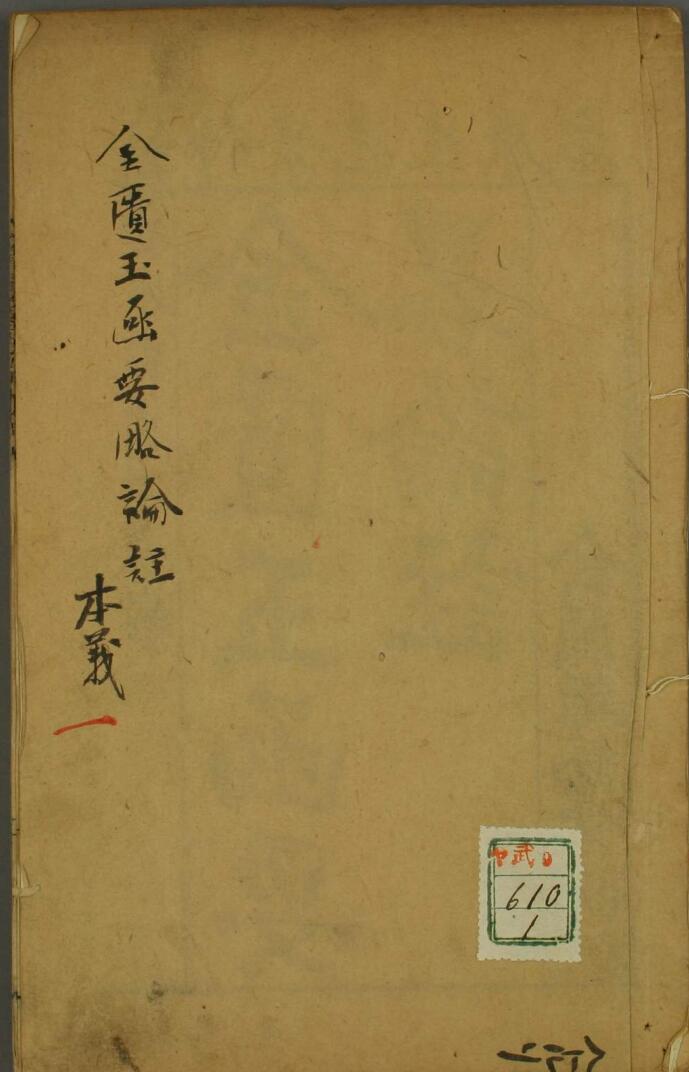 金匱玉函要略論註
本義
一
610
1